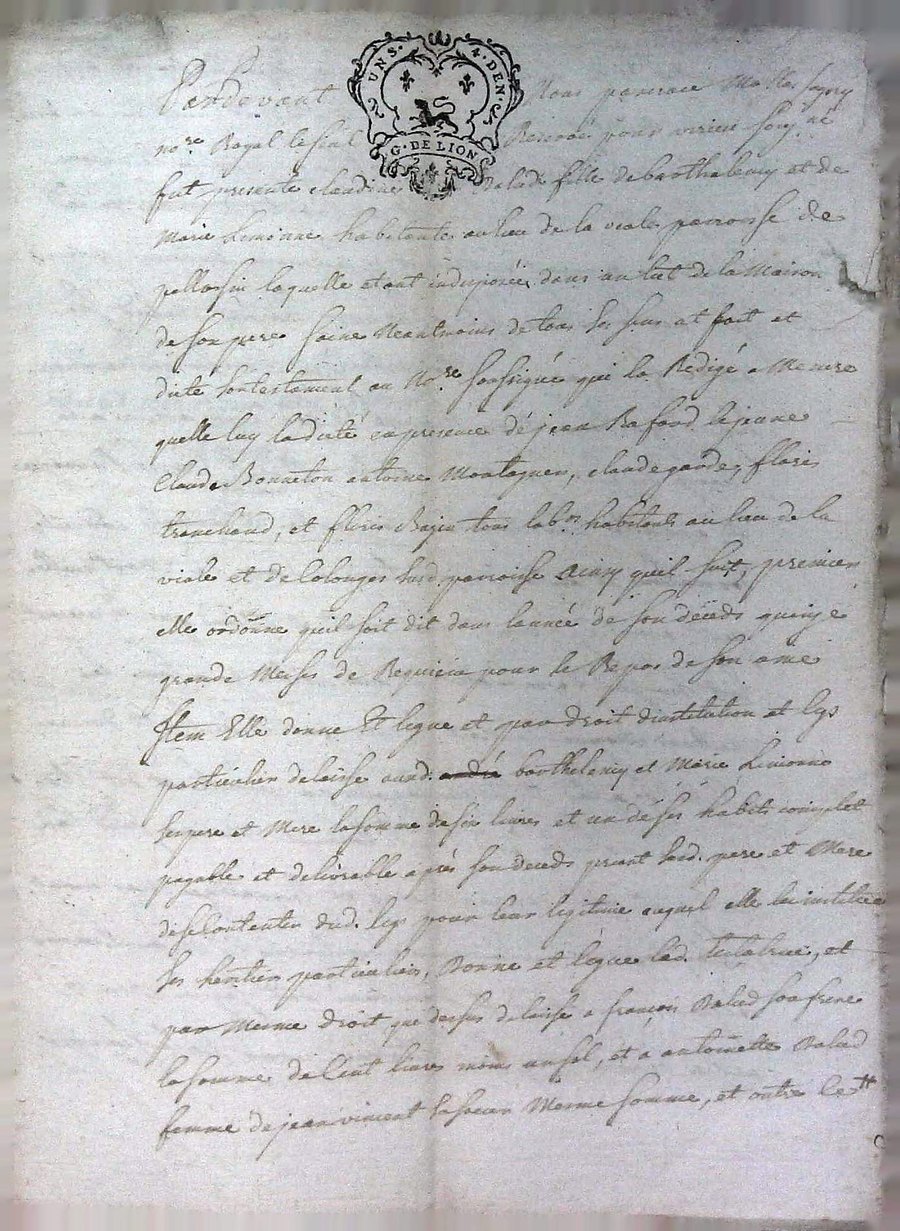 UNS. 4. DEN.
G. DE LION
Pardevant Nous
no.re Royal
fut presente claudine Balad fille de barthelemy et de
Marie Limonne habitante au lieu de la viale parroisse de
pellossin laquelle etant indisposée dans un lict de la Maison
de son pere saine Neantmoins de tous ses sens at fait et
dicté son testament au No.re soussigné qui la Redigé a Mesure
quelle luy la dicté en presence de jean Rafard le jeune
Claude Bonneton antoine Montagner, claude garde, floris
tranchand, et floris Bajin tous lab.rs habitants au lieu de la
viale et de lolonges susd. parroisse Ainsy quil suit, premier
elle ordonne quil soit dit dans lannée de son deceds quinze
grande Messes de Requiem pour le Repos de son ame
Item Elle donne Et legue et par droit dinstitution et legs
particulier delaisse aud. andré barthelemy et Marie Limonne
ses pere et Mere la somme de six livres et un de ses habits complet
payable et delivrable après son deceds priant sesd. pere et Mere
de se Contenter dud. legs pour leur legitime auquel elle les institue
ses heritiers particuliers, Donne et legue lad. testatrice, et
par Mesme droit que dessus delaisse a françois Balad son frere
la somme de Cent livres moins un sol, et a antoinette Balad
femme de jean vincent sa soeur Mesme somme, et outre ce